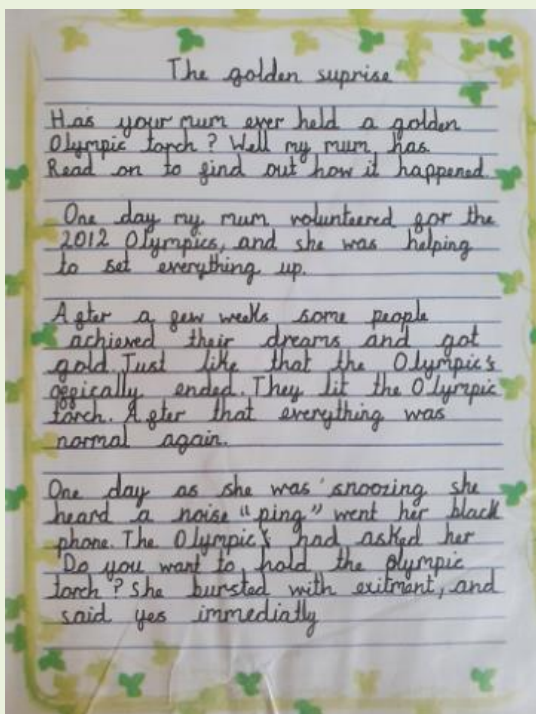 The golden suprise
Has your mum ever held a golden
Olympic torch? Well my mum has.
Read on to find out how it happened.
One day my mum volunteered for the
2012 Olympics, and she was helping
to set everything up.
After a few weeks some people
achieved their dreams and got
gold. Just like that the Olympic's
offically ended. They lit the Olympic
torch. After that everything was
normal again.
One day as she was snoozing she
heard a noise "ping" went her black
phone. The Olympic's had asked her
Do you want to hold the olympic
torch? She bursted with exitment, and
said yes immediatly